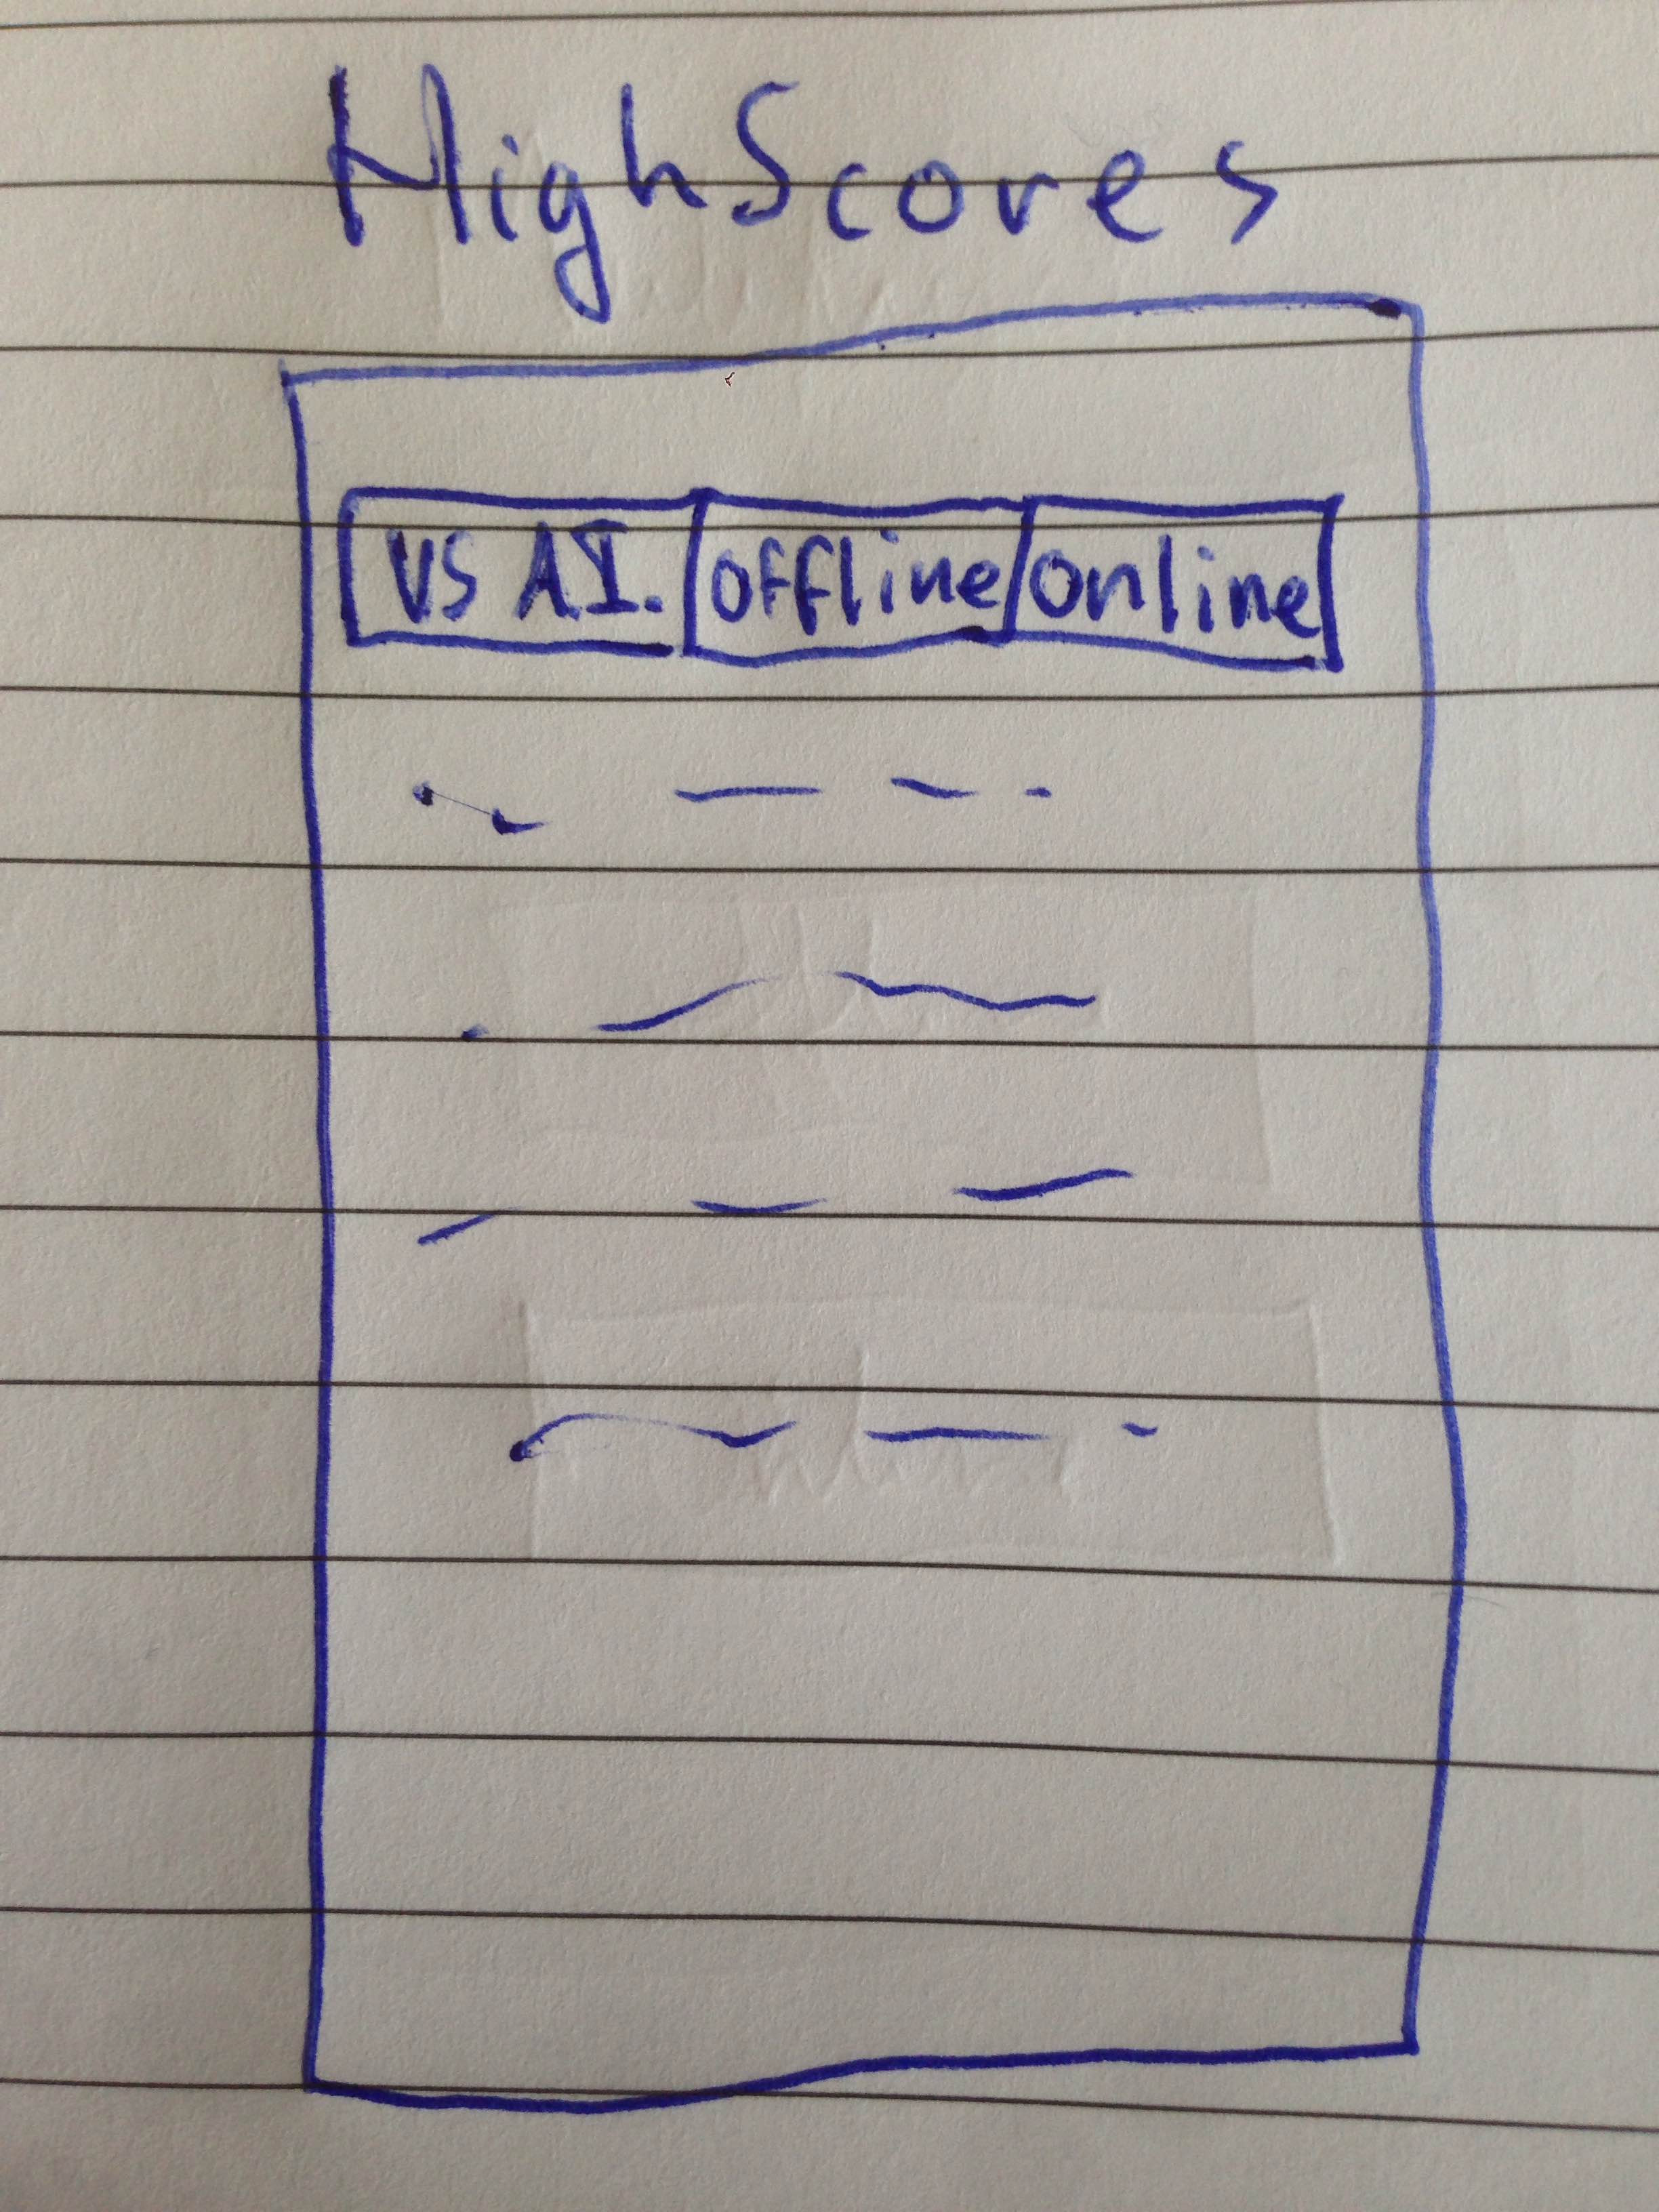 HighScores
VS A.I. offline online